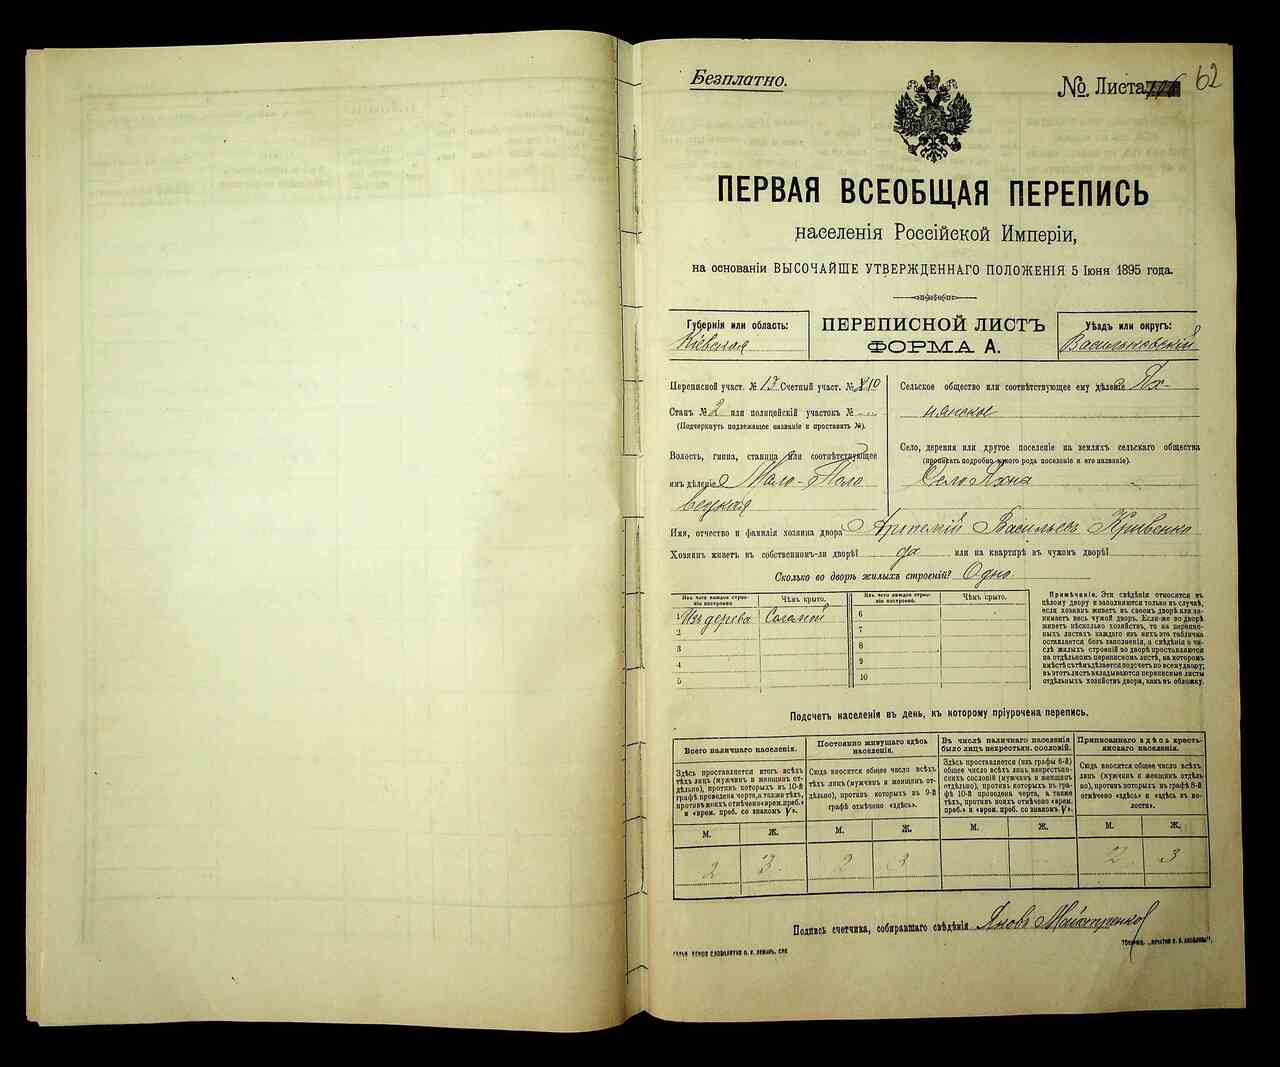 Безплатно.
№. Листа 62
ПЕРВАЯ ВСЕОБЩАЯ ПЕРЕПИСЬ
населенія Россійской Имперіи,
на основаніи ВЫСОЧАЙШЕ УТВЕРЖДЕННАГО ПОЛОЖЕНІЯ 5 Іюня 1895 года.
Губернія или область:
Кіевская
ПЕРЕПИСНОЙ ЛИСТЪ
ФОРМА А.
Уѣздъ или округъ:
Васильковскій
Переписной участ. № 13 Счетный участ. № 10
Станъ № 2 или полицейскій участокъ №
(Подчеркнуть подлежащее названіе и проставить №).
Волость, гмина, станица или соотвѣтствующее
имъ дѣленіе Мало-Поло
вецкая
Сельское общество или соотвѣтствующее ему дѣленіе Пх-
нянское
Село, деревня или другое поселеніе на земляхъ сельскаго общества
(прописать подробно, какого рода поселеніе и его названіе).
Село Пхна
Имя, отчество и фамилія хозяина двора Артемій Васильевъ Кривенко
Хозяинъ живетъ въ собственномъ-ли дворѣ? да или на квартирѣ въ чужомъ дворѣ?
Сколько во дворѣ жилыхъ строеній? Одно.
Изъ чего каждое строе-
ніе построено.
Чѣмъ крыто.
Изъ чего каждое строе-
ніе построено.
Чѣмъ крыто.
1 Изъ дерева Соломой 6
2 7
3 8
4 9
5 10
Примѣчаніе. Эти свѣдѣнія относятся къ
цѣлому двору и заполняются только въ случаѣ,
если хозяинъ живетъ въ своемъ дворѣ или за-
нимаетъ весь чужой дворъ. Если-же во дворѣ
живетъ нѣсколько хозяйствъ, то на перепис-
ныхъ листахъ каждаго изъ нихъ эта табличка
оставляется безъ заполненія, а свѣдѣнія о чи-
слѣ жилыхъ строеній во дворѣ проставляются
на отдѣльномъ переписномъ листѣ, на которомъ
вмѣстѣ съ тѣмъ дѣлается подсчетъ по всему двору;
въ этотъ листъ вкладываются переписные листы
отдѣльныхъ хозяйствъ двора, какъ въ обложку.
Подсчетъ населенія въ день, къ которому пріурочена перепись.
Всего наличнаго населенія.
Здѣсь проставляется итогъ всѣхъ
тѣхъ лицъ (мужчинъ и женщинъ от-
дѣльно), противъ которыхъ въ 10-й
графѣ проведена черта, а также тѣхъ,
противъ коихъ отмѣчено «врем. преб.»
и «врем. преб. со знакомъ V».
Постоянно живущаго здѣсь
населенія.
Сюда вносится общее число всѣхъ
тѣхъ лицъ (мужчинъ и женщинъ от-
дѣльно), противъ которыхъ въ 9-й
графѣ отмѣчено «здѣсь».
Въ числѣ наличнаго населенія
было лицъ некрестьян. сословій.
Здѣсь проставляется (изъ графы 8-й)
общее число всѣхъ лицъ некрестьян-
скихъ сословій (мужчинъ и женщинъ
отдѣльно), противъ которыхъ въ гра-
фѣ 10-й проведена черта, а также
тѣхъ, противъ коихъ отмѣчено «врем.
преб.» и «врем. преб. со знакомъ V».
Приписаннаго здѣсь кресть-
янскаго населенія.
Сюда вносится общее число всѣхъ
лицъ (мужчинъ и женщинъ отдѣль-
но), противъ которыхъ въ графѣ 8-й
отмѣчено «здѣсь» и «здѣсь въ во-
лости».
М. Ж. М. Ж. М. Ж. М. Ж.
2 3 2 3 2 3
Подпись счетчика, собиравшаго свѣдѣнія Яковъ